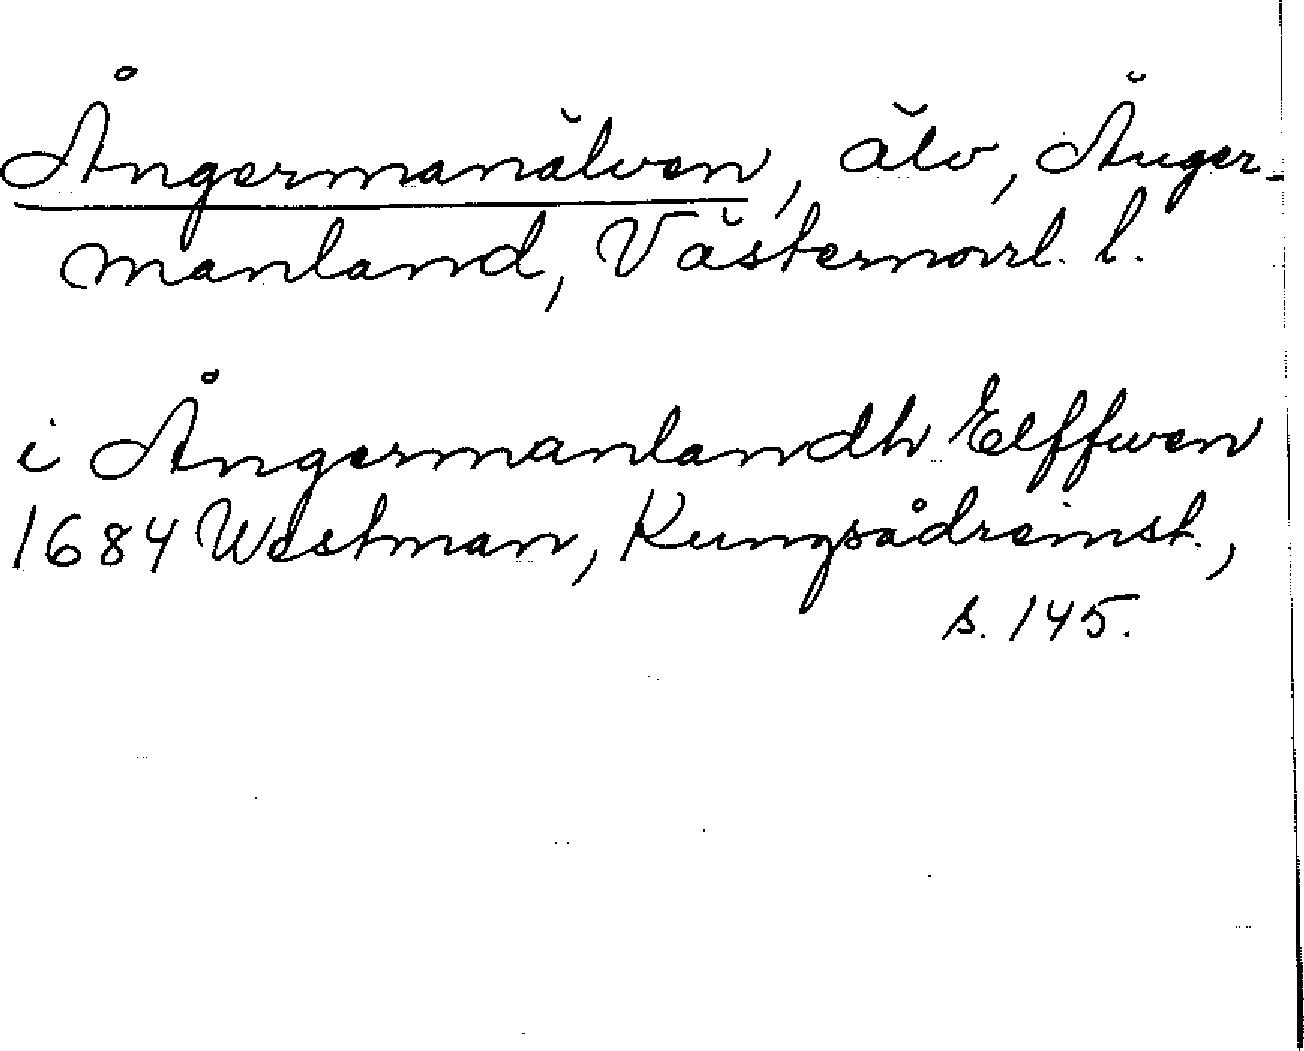 Ångermanälven, älv, Ånger-
manland, Västernorrl. l.
i Ångermanlandh Elffwen
1684 Westman, Kungsådreinst.,
s. 145.